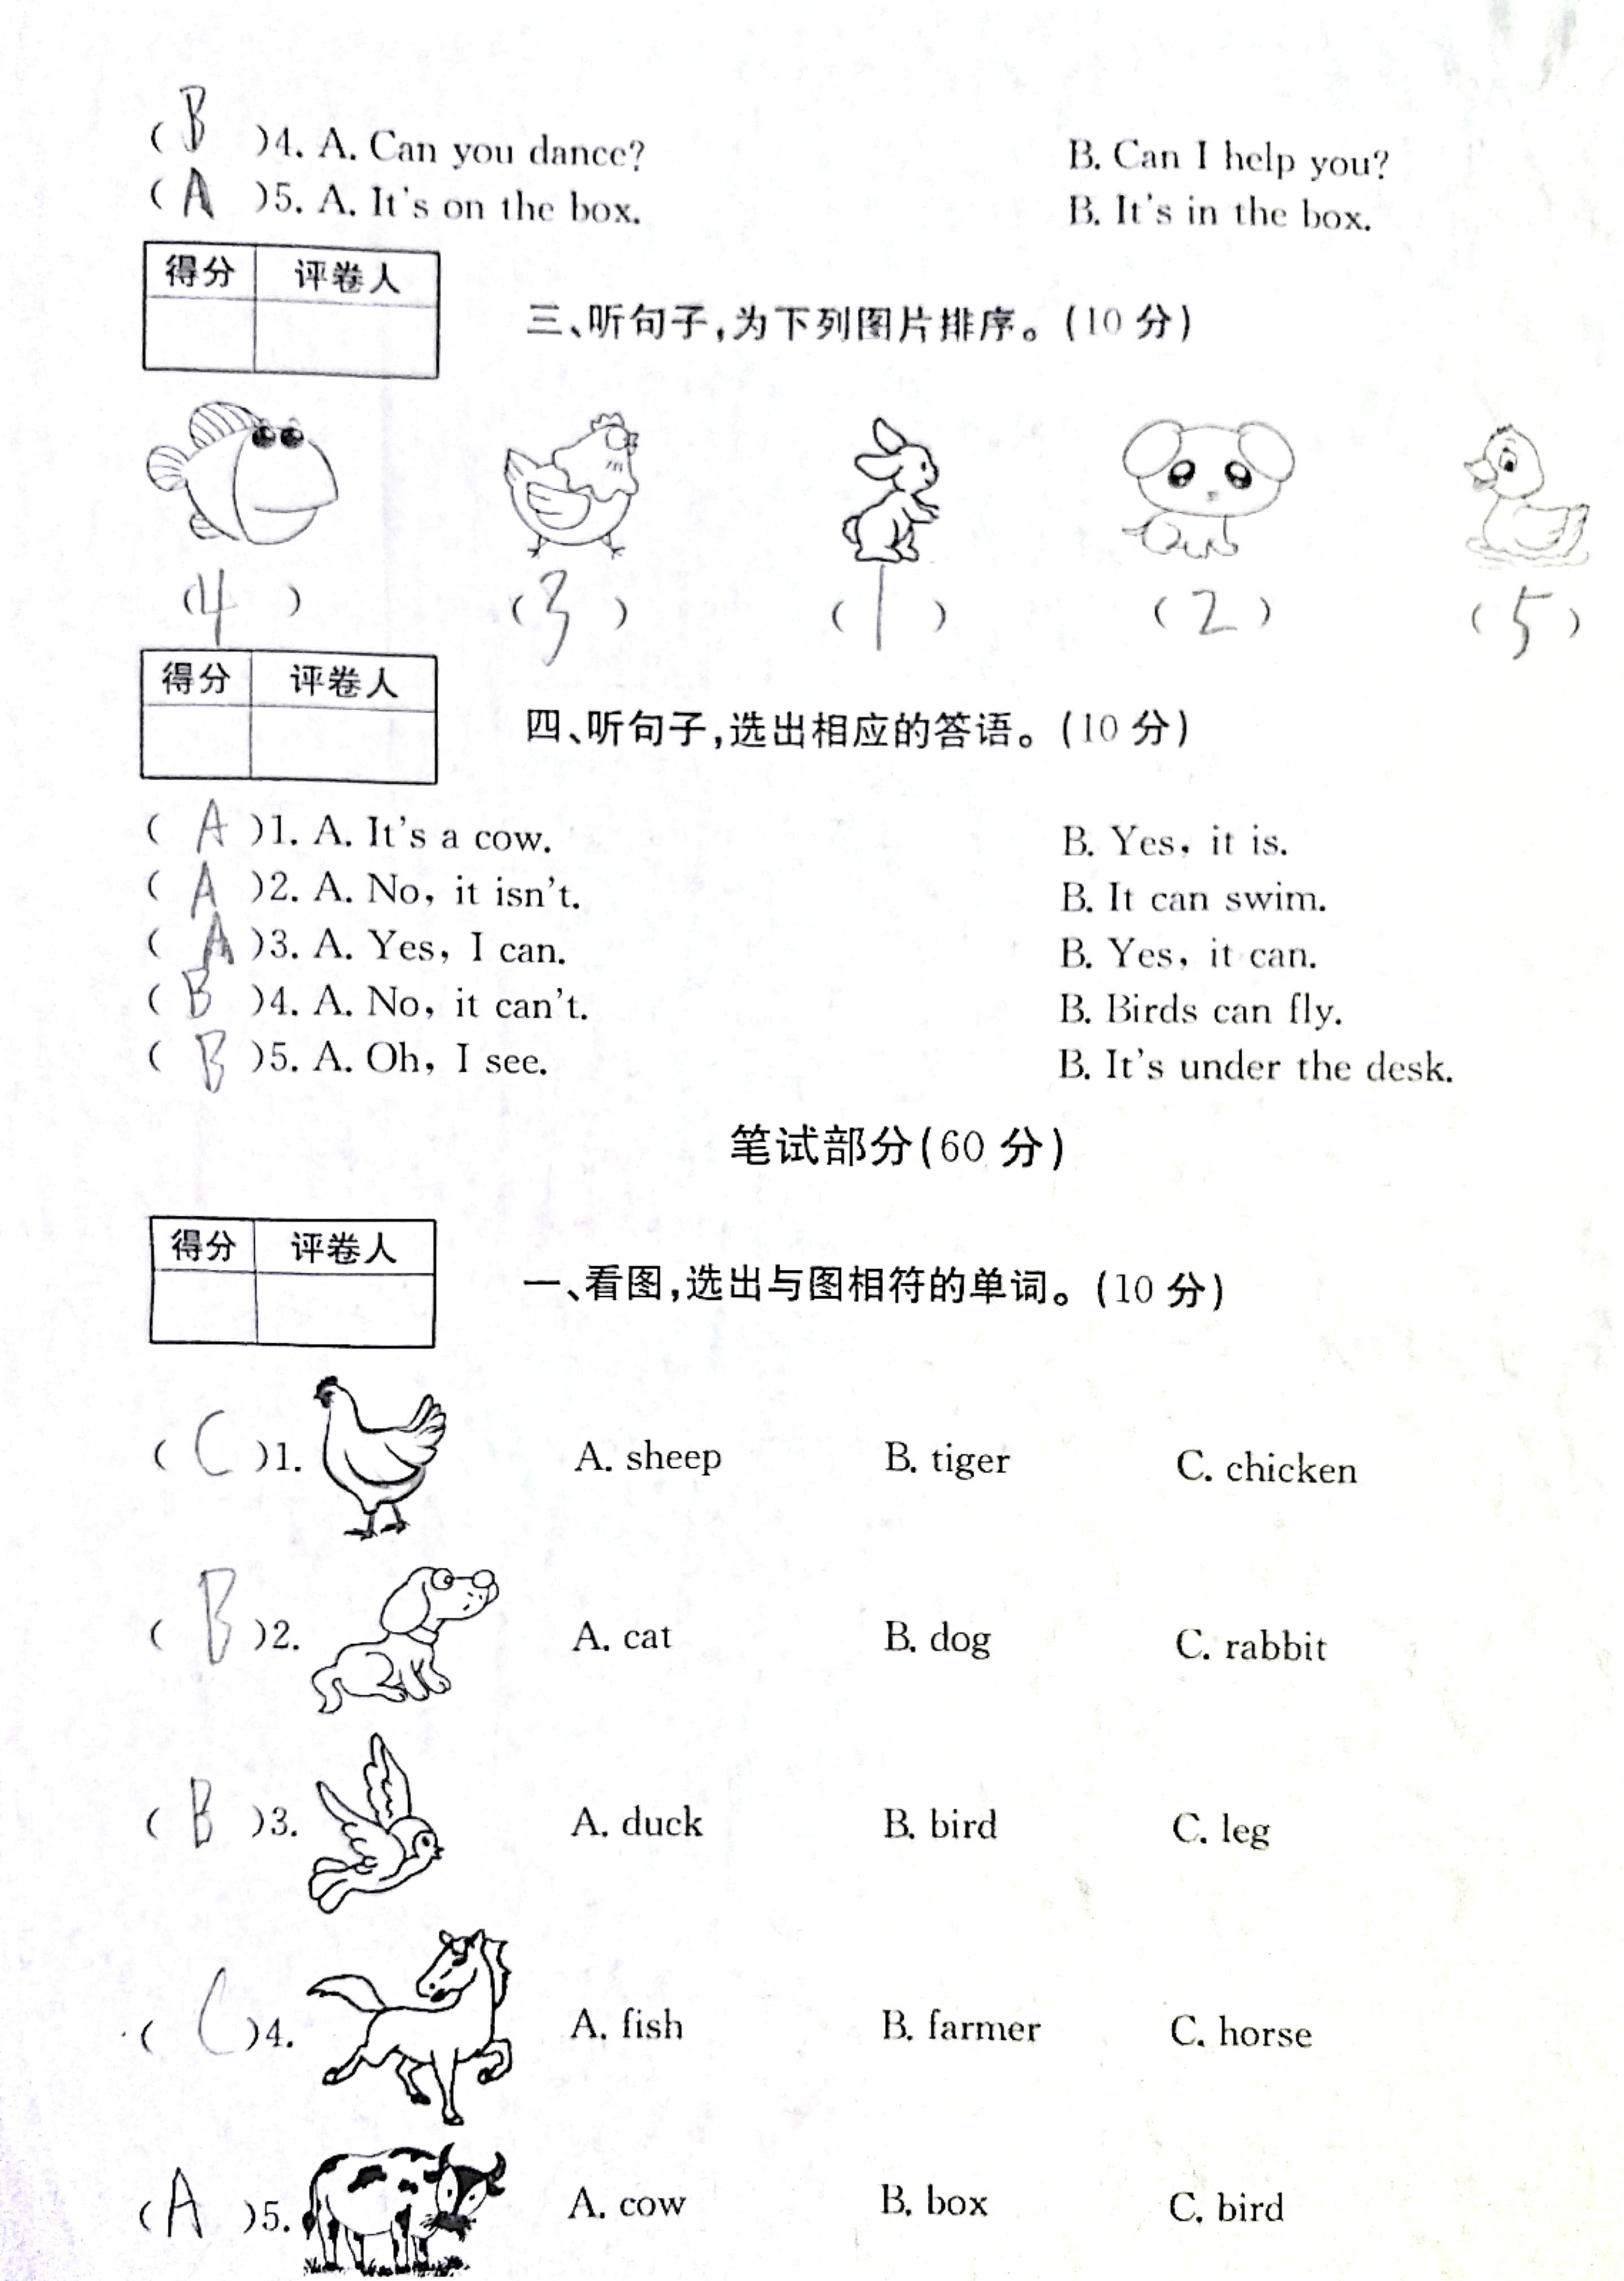 ( B )4. A. Can you dance? B. Can I help you?
( A )5. A. It's on the box. B. It's in the box.
得分 评卷人
三、听句子,为下列图片排序。(10 分)
(4) (3) (1) (2) (5)
得分 评卷人
四、听句子,选出相应的答语。(10 分)
( A )1. A. It's a cow. B. Yes, it is.
( A )2. A. No, it isn't. B. It can swim.
( A )3. A. Yes, I can. B. Yes, it can.
( B )4. A. No, it can't. B. Birds can fly.
( B )5. A. Oh, I see. B. It's under the desk.
笔试部分(60 分)
得分 评卷人
一、看图,选出与图相符的单词。(10 分)
( C )1. A. sheep B. tiger C. chicken
( B )2. A. cat B. dog C. rabbit
( B )3. A. duck B. bird C. leg
( C )4. A. fish B. farmer C. horse
( A )5. A. cow B. box C. bird